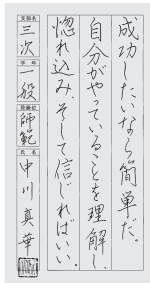 成功したいなら簡単だ。
自分がやっていることを理解し、
惚れ込み、そして信じればいい。
支部名
三次
学年
一般
段級位
師範
氏名
中川真華